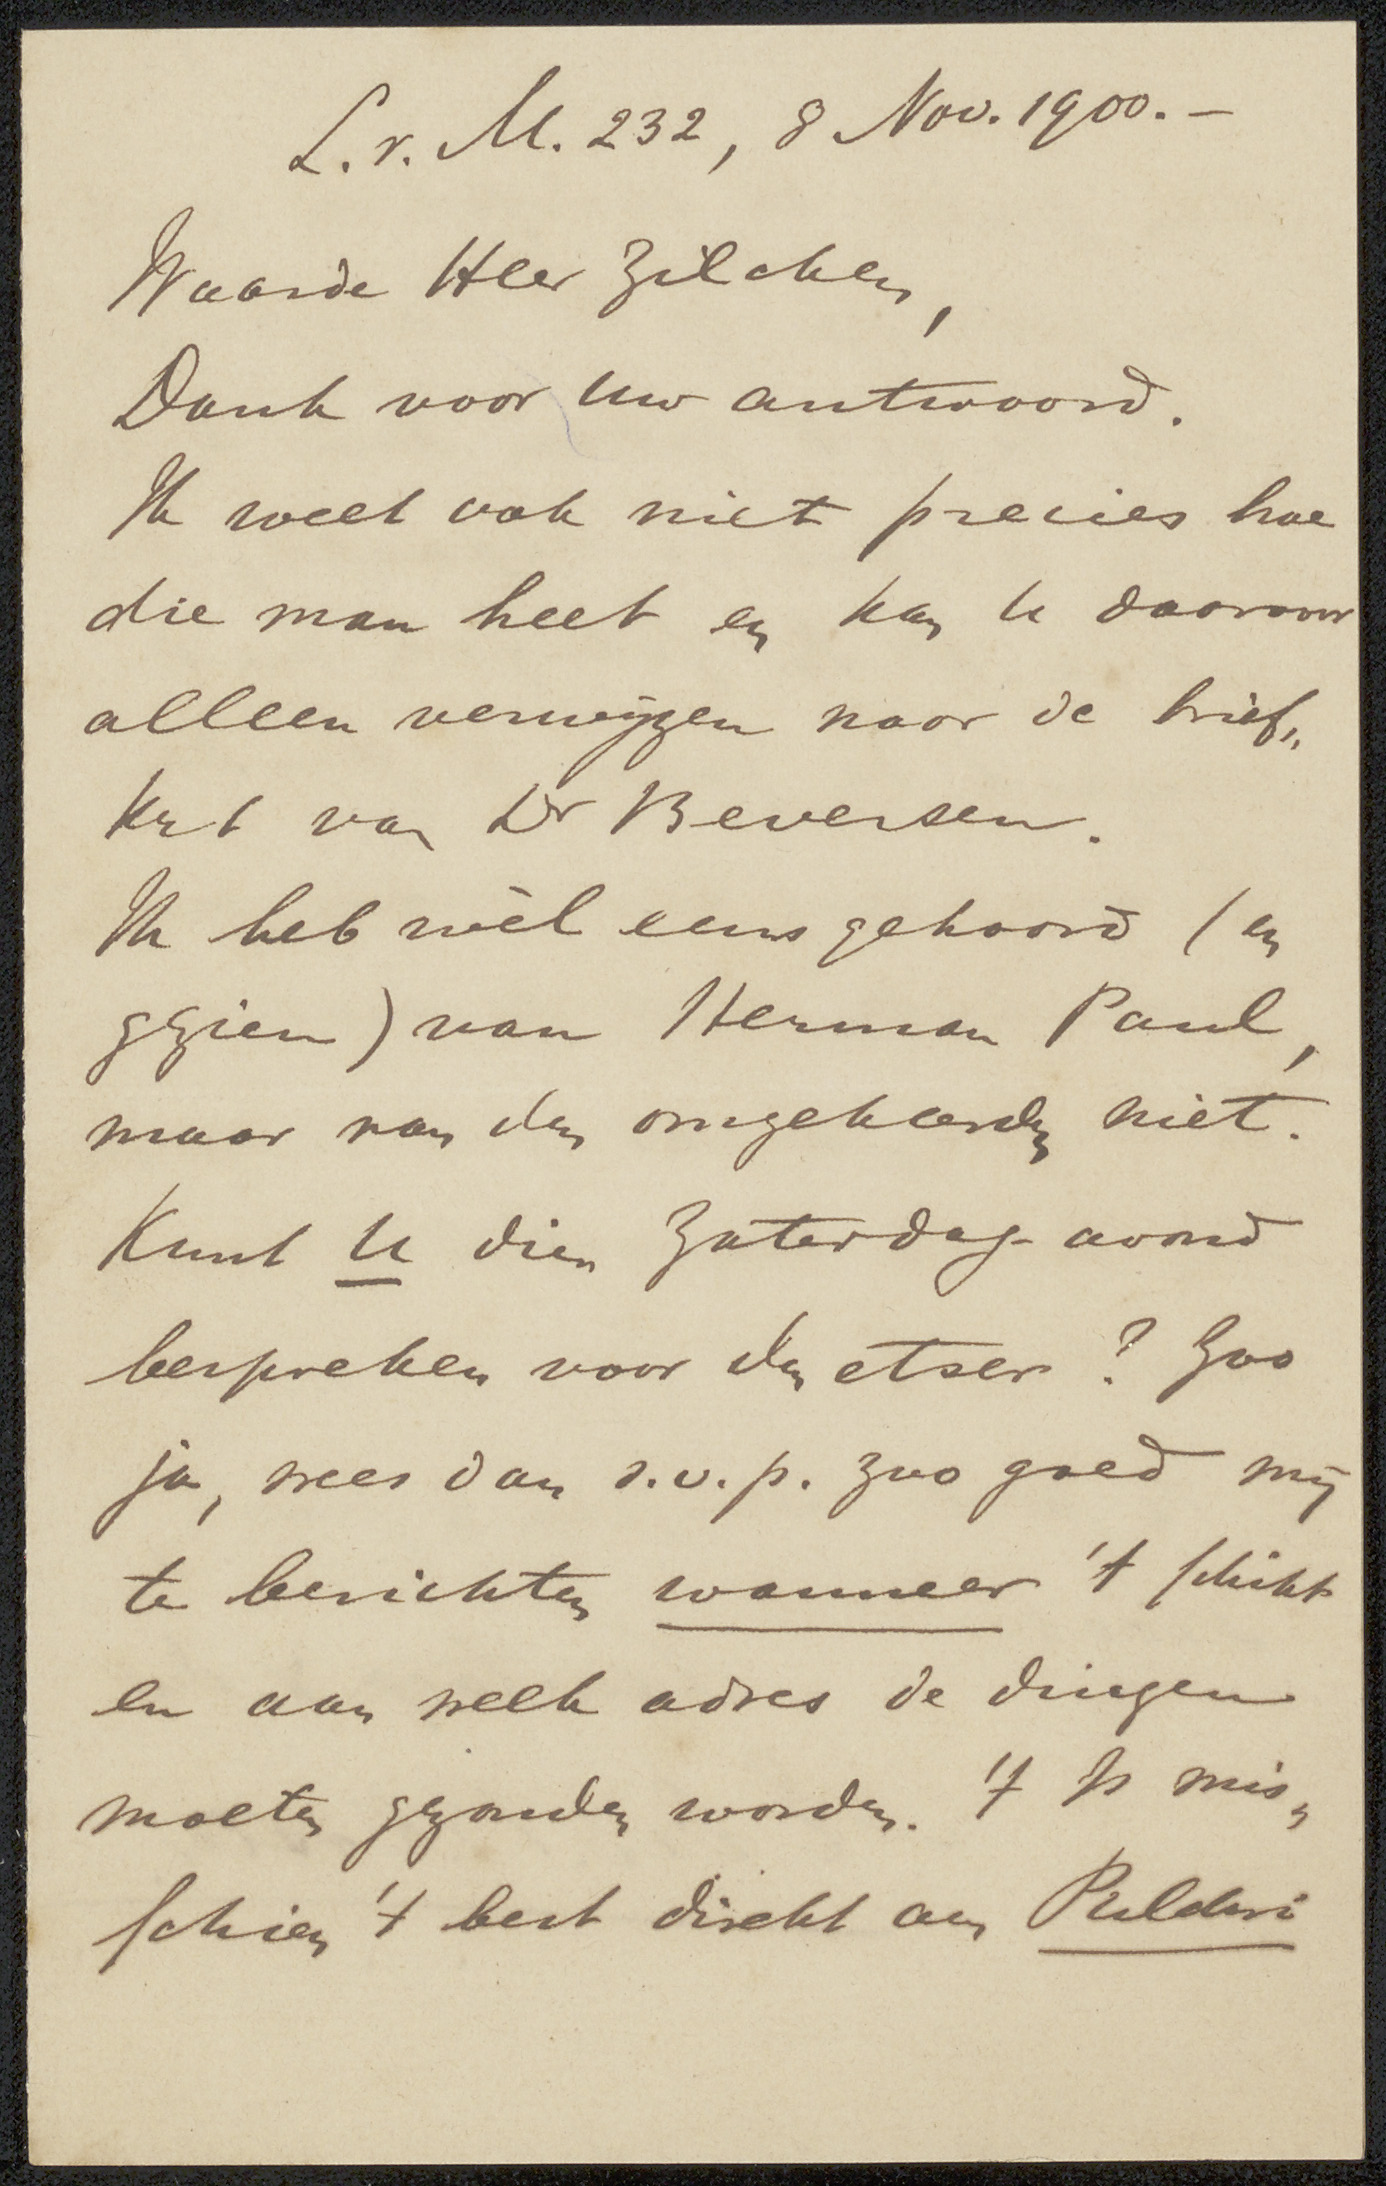 L. v. M. 232, 8 Nov. 1900. -
Waarde Heer Zilcken,
Dank voor Uw antwoord.
Ik weet ook niet precies hoe
die man heet en kan U daarover
alleen verwijzen naar de brief„
krt van Dr Beversen.
Ik heb wèl eens gehoord (en
gezien) van Herman Paul,
maar van den omgekeerden niet.
Kunt U dien Zaterdag-avond
bespreken voor den etser? Zoo
ja, wees dan s.v.p. zoo goed mij
te berichten wanneer 't schikt
en aan welk adres de dingen
moeten gezonden worden. 't Is mis„
schien 't best direkt aan Pulchri